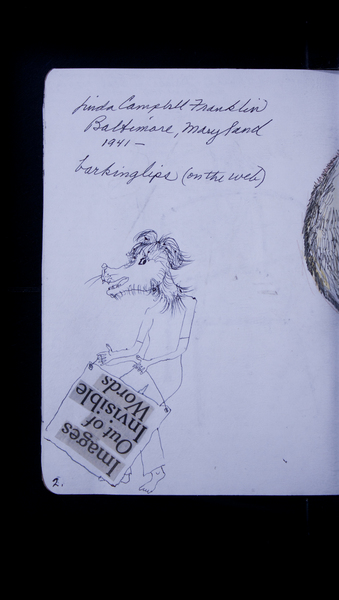 Linda Campbell Franklin
Baltimore, Maryland
1941 —
barkinglips (on the web)
Images
Out of
Invisible
Words
2.